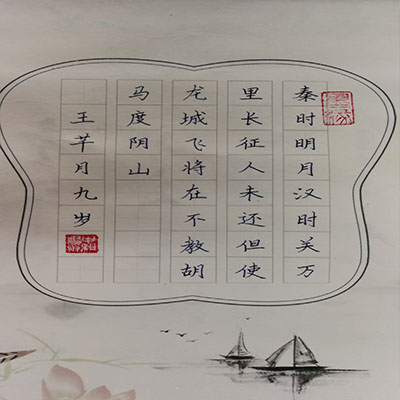 秦时明月汉时关万
里长征人未还但使
龙城飞将在不教胡
马度阴山
王芊月九岁